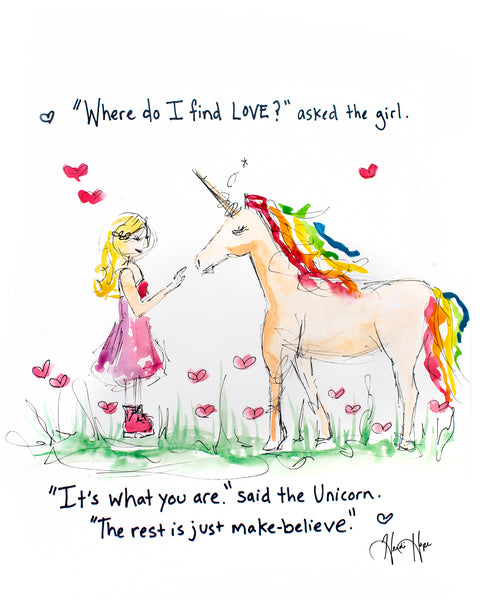 "Where do I find LOVE?" asked the girl.
"It's what you are." said the Unicorn.
"The rest is just make-believe."